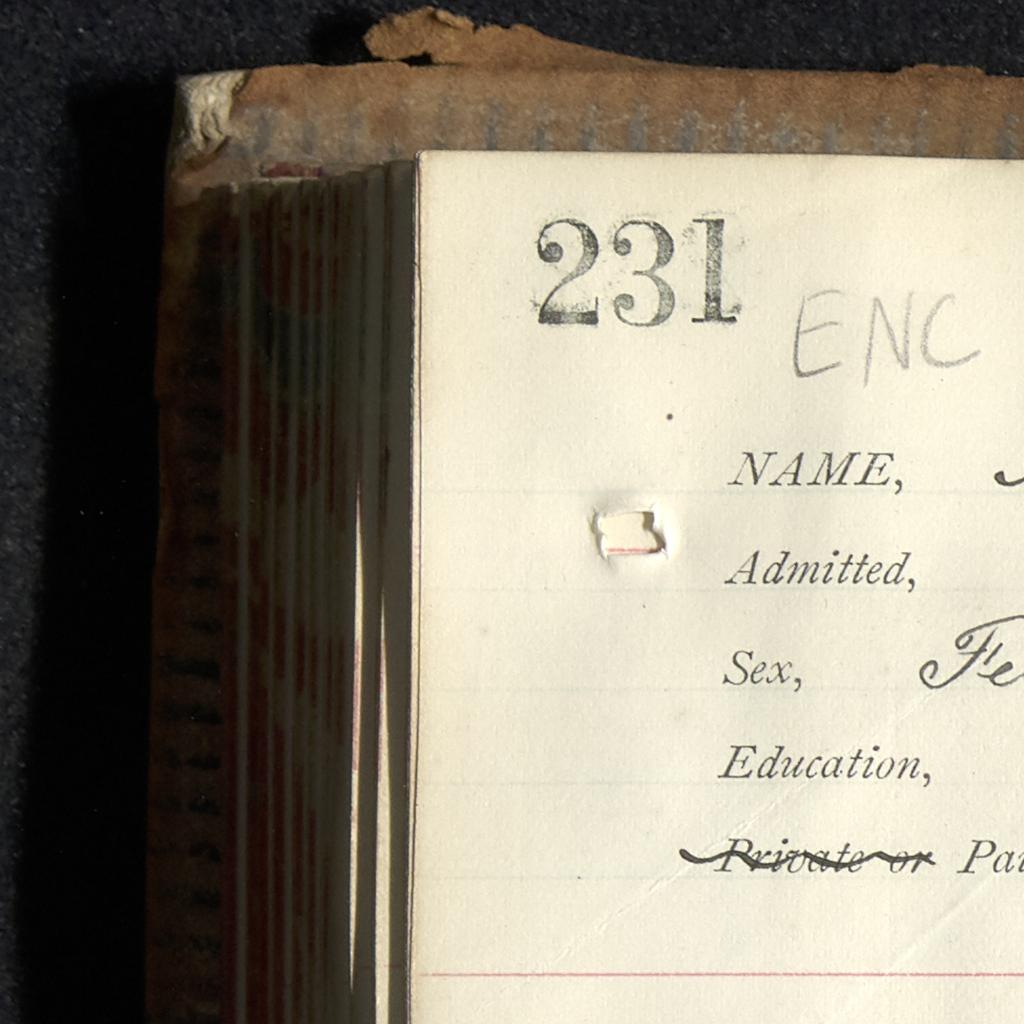 231
ENC
NAME,
Admitted,
Sex, Fe
Education,
Private or Pai